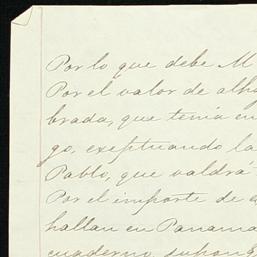 Por lo que debe M
Por el valor de alha
brada, que tenia en
go, exeptuando la
Pablo, que valdrá
Por el importe de
hallan en Panama
cuaderno